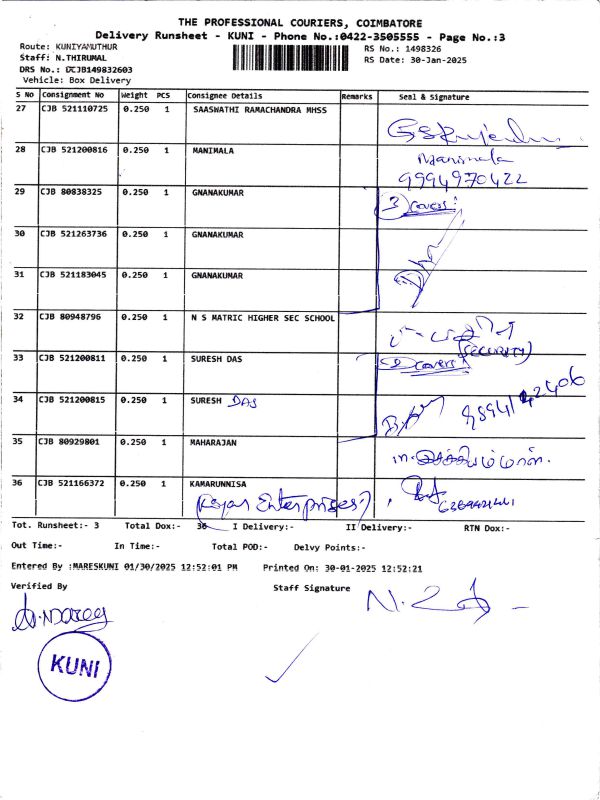 THE PROFESSIONAL COURIERS, COIMBATORE
Delivery Runsheet - KUNI - Phone No.:0422-3505555 - Page No.:3
Route: KUNIYAMUTHUR RS No.: 1498326
Staff: N.THIRUMAL RS Date: 30-Jan-2025
DRS No.: DCJB149832603
Vehicle: Box Delivery
S No Consignment No Weight PCS Consignee Details Remarks Seal & Signature
27 CJB 521110725 0.250 1 SAASWATHI RAMACHANDRA MHSS
28 CJB 521200816 0.250 1 MANIMALA Manimala
9994970422
29 CJB 80838325 0.250 1 GNANAKUMAR 3 covers:
30 CJB 521263736 0.250 1 GNANAKUMAR
31 CJB 521183045 0.250 1 GNANAKUMAR
32 CJB 80948796 0.250 1 N S MATRIC HIGHER SEC SCHOOL
(SECURITY)
33 CJB 521200811 0.250 1 SURESH DAS 2 covers:
34 CJB 521200815 0.250 1 SURESH DAS
35 CJB 80929801 0.250 1 MAHARAJAN
36 CJB 521166372 0.250 1 KAMARUNNISA
Enterprises
Tot. Runsheet:- 3 Total Dox:- 36 I Delivery:- II Delivery:- RTN Dox:-
Out Time:- In Time:- Total POD:- Delvy Points:-
Entered By :MARESKUNI 01/30/2025 12:52:01 PM Printed On: 30-01-2025 12:52:21
Verified By Staff Signature
KUNI